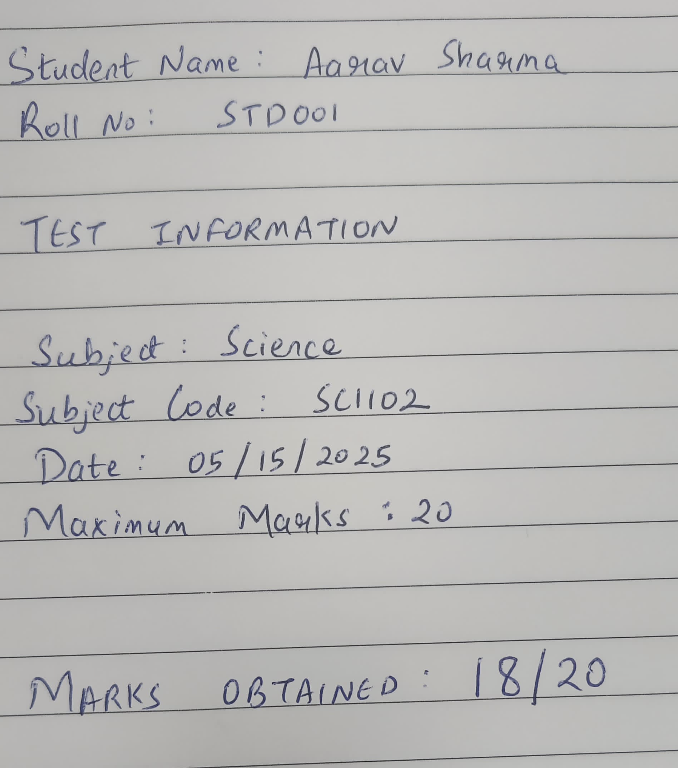 Student Name : Aarav Sharma
Roll No : STD001
TEST INFORMATION
Subject : Science
Subject Code : SCI102
Date : 05/15/2025
Maximum Marks : 20
MARKS OBTAINED : 18/20